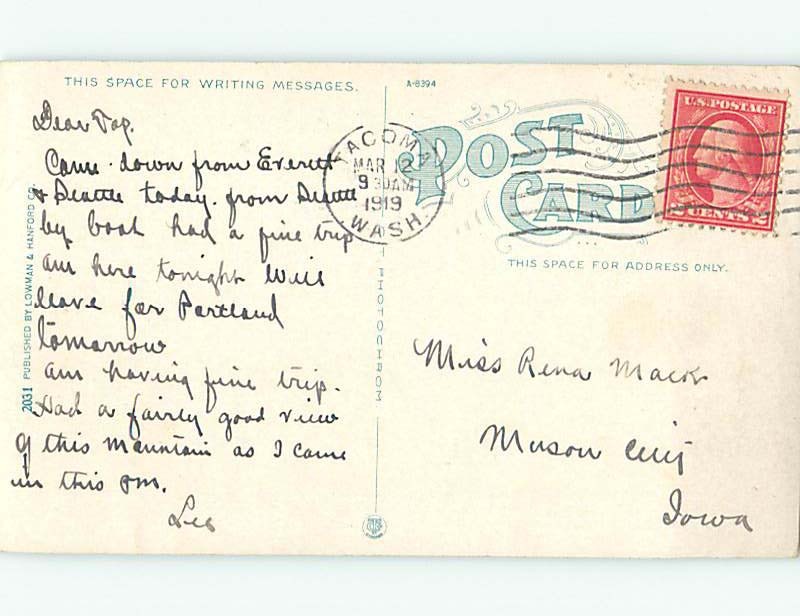 THIS SPACE FOR WRITING MESSAGES.
A-8394
Dear
Came down from Everett
& Seattle today. from Seattle
by boat had a fine trip
am here tonight Will
leave for Portland
tomorrow
am having fine trip.
Had a fairly good view
of this mountain as I came
in this pm.
Leo
2031 PUBLISHED BY LOWMAN & HANFORD CO.
PHOTOCHROM
TACOMA
MAR 12
9 30AM
1919
WASH.
POST
CARD
U.S. POSTAGE
2 CENTS 2
THIS SPACE FOR ADDRESS ONLY.
Miss Rena Mack
Mason City
Iowa